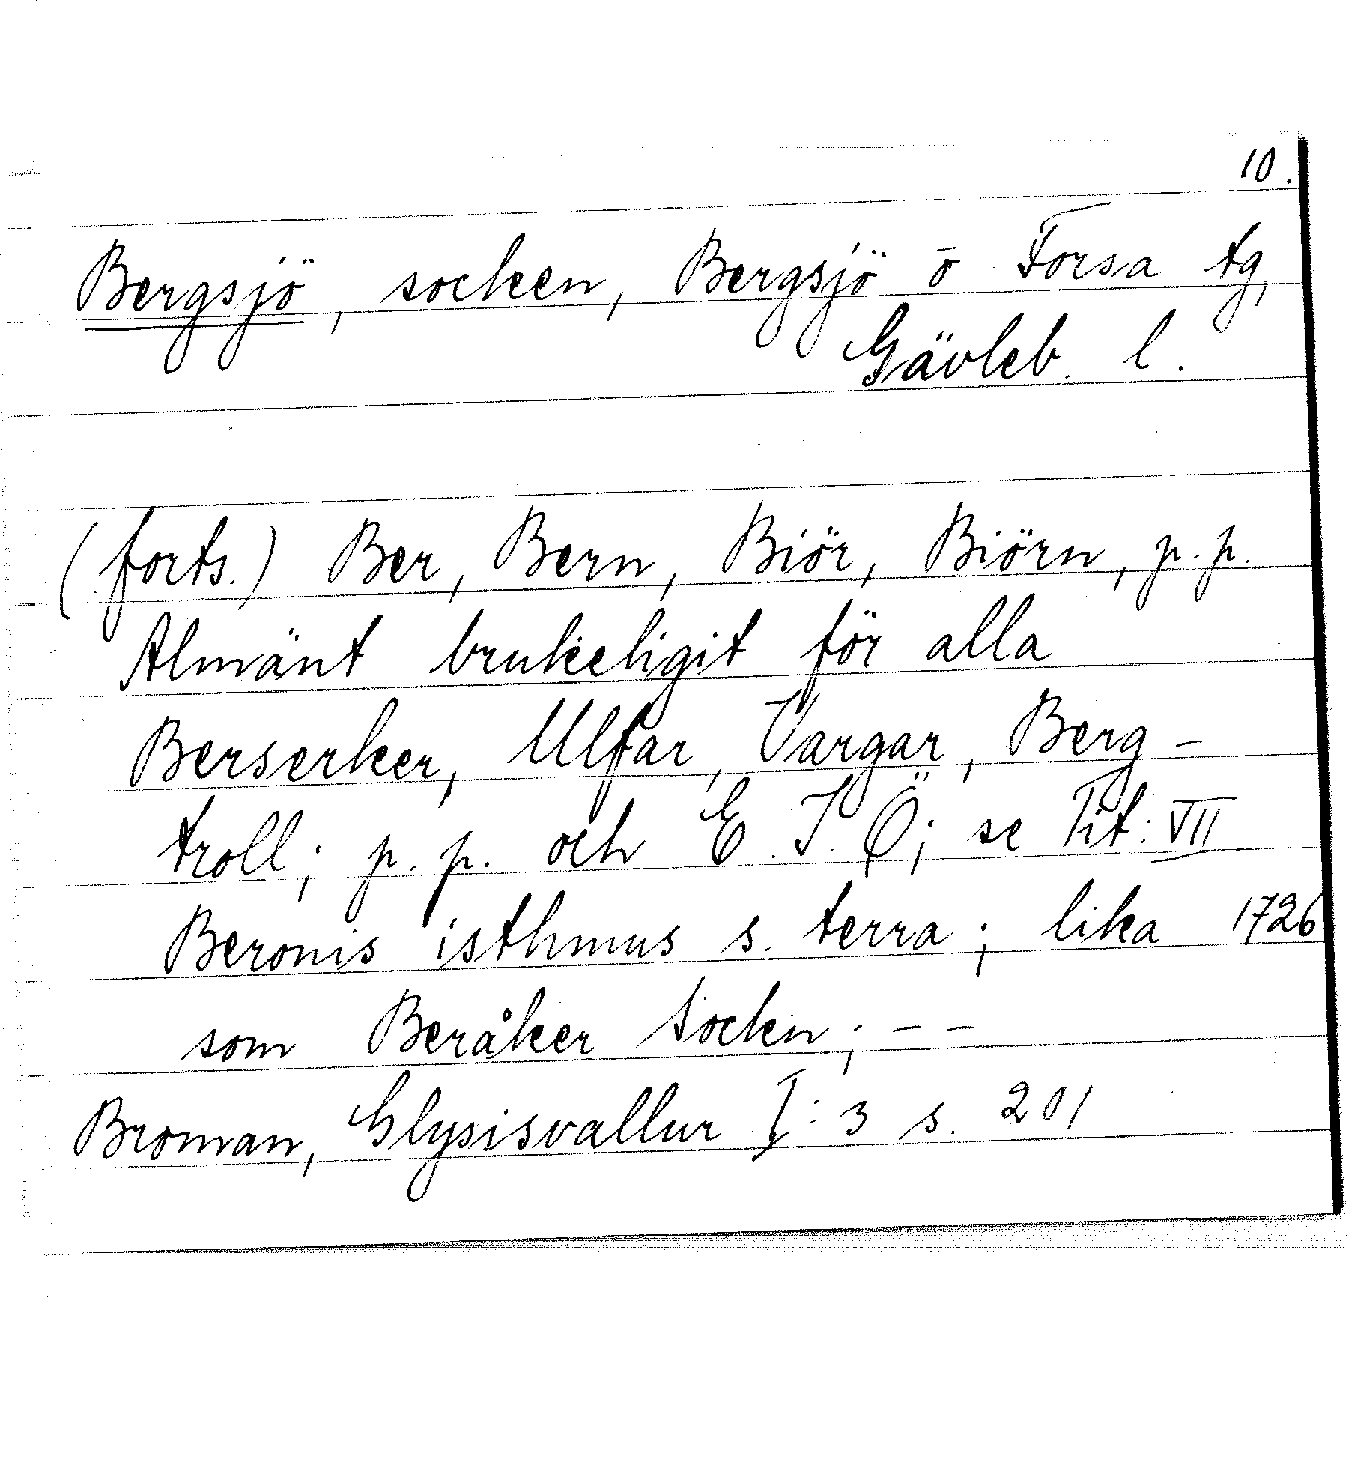 10.
Bergsjö, socken, Bergsjö o Forsa tg,
Gävleb. l.
(forts.) Ber, Bern, Biör, Biörn, p.p.
Almänt brukeligit för alla
Berserker, Ulfar, Vargar, Berg-
troll; p.p. och E. T. Ö; se Tit: VII
Beronis isthmus s. terra; lika 1726
som Beråker Sockn; --
Broman, Glysisvallur I: 3 s. 201